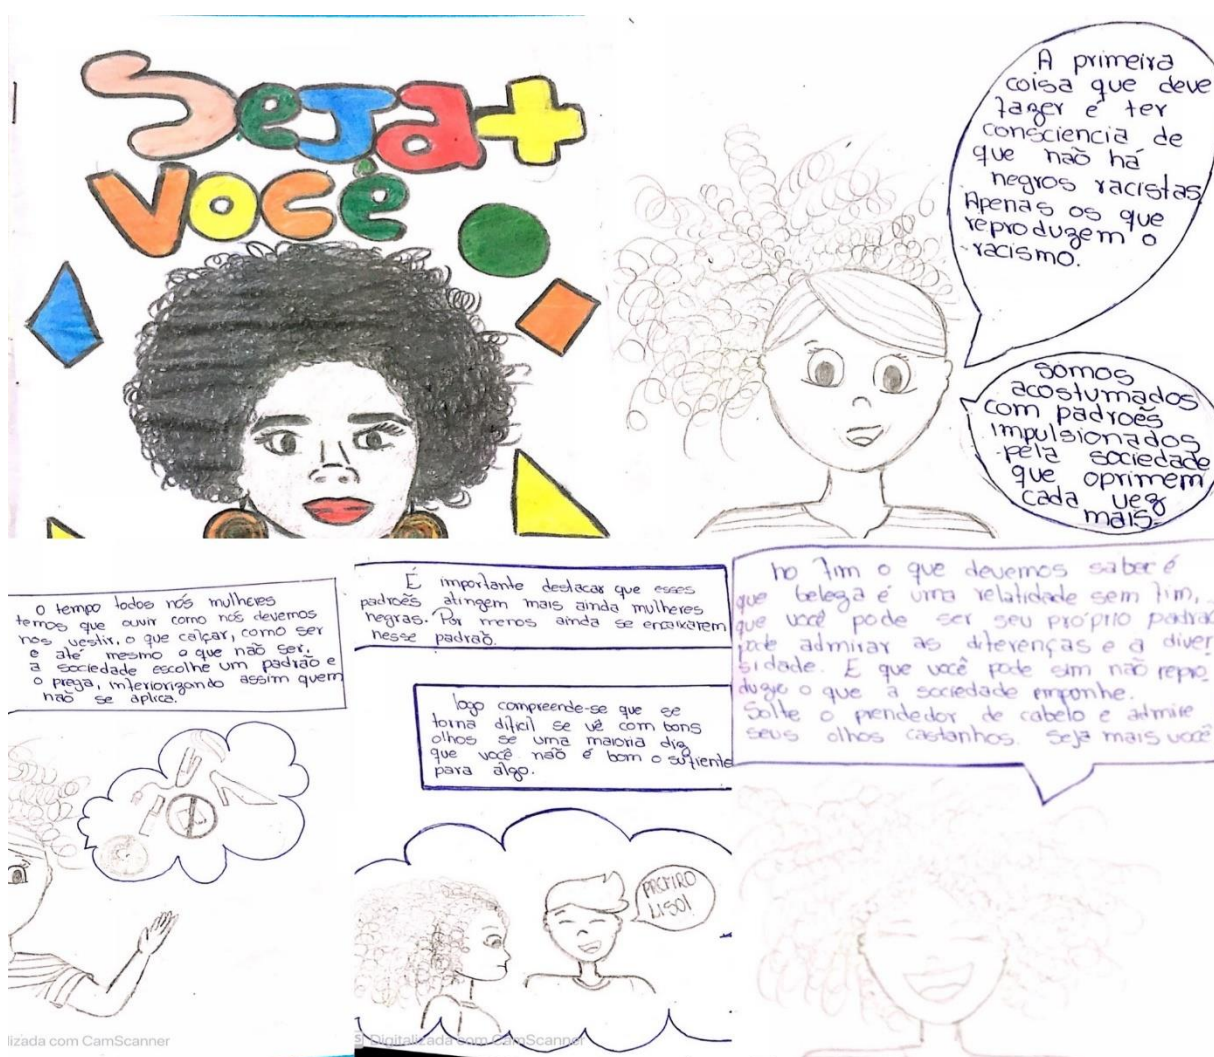 Seja+
você
A primeira
coisa que deve
fazer é ter
consciencia de
que não há
negros racistas
Apenas os que
reproduzem o
racismo.
somos
acostumados
com padroẽs
impulsionados
pela sociedade
que oprimem
cada vez
mais.
o tempo todos nós mulheres
temos que ouvir como nós devemos
nos vestir, o que calçar, como ser
e até mesmo o que não ser.
a sociedade escolhe um padrão e
o prega, inferiorizando assim quem
não se aplica.
lizada com CamScanner
É importante destacar que esses
padroẽs atingem mais ainda mulheres
negras. Por menos ainda se encaixarem
nesse padrão.
logo compreende-se que se
torna difícil se vê com bons
olhos se uma maioria diz
que você não é bom o sufiente
para algo.
PREFIRO
LISO!
Digitalizada com CamScanner
no fim o que devemos saber é
que beleza é uma relatidade sem fim,
que você pode ser seu próprio padrão
pode admirar as diferenças e a diver
sidade. E que você pode sim não repro-
duzir o que a sociedade emponhe.
Solte o prendedor de cabelo e admire
seus olhos castanhos. Seja mais você